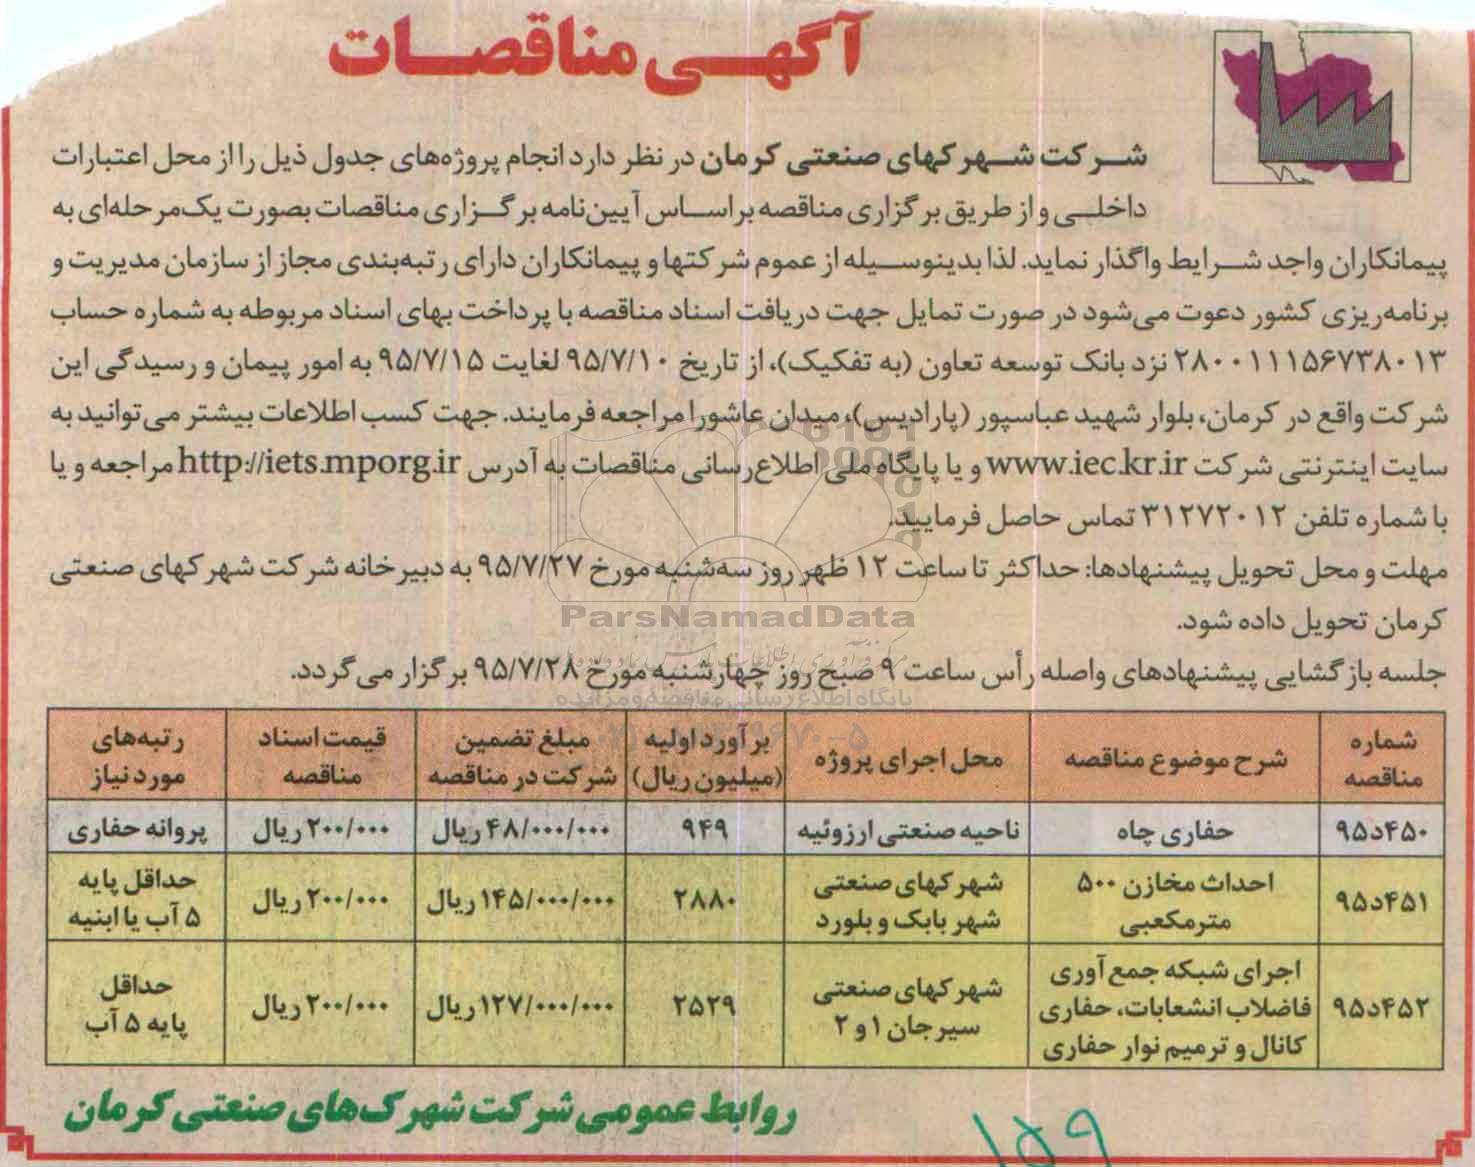 آگهی مناقصات
شرکت شهرکهای صنعتی کرمان در نظر دارد انجام پروژه‌های جدول ذیل را از محل اعتبارات
داخلی و از طریق برگزاری مناقصه براساس آیین‌نامه برگزاری مناقصات بصورت یک‌مرحله‌ای به
پیمانکاران واجد شرایط واگذار نماید. لذا بدینوسیله از عموم شرکتها و پیمانکاران دارای رتبه‌بندی مجاز از سازمان مدیریت و
برنامه‌ریزی کشور دعوت می‌شود در صورت تمایل جهت دریافت اسناد مناقصه با پرداخت بهای اسناد مربوطه به شماره حساب
۲۸۰۰۱۱۱۵۶۷۳۸۰۱۳ نزد بانک توسعه تعاون (به تفکیک)، از تاریخ ۹۵/۷/۱۰ لغایت ۹۵/۷/۱۵ به امور پیمان و رسیدگی این
شرکت واقع در کرمان، بلوار شهید عباسپور (پارادیس)، میدان عاشورا مراجعه فرمایند. جهت کسب اطلاعات بیشتر می‌توانید به
سایت اینترنتی شرکت www.iec.kr.ir و یا پایگاه ملی اطلاع‌رسانی مناقصات به آدرس http://iets.mporg.ir مراجعه و یا
با شماره تلفن ۳۱۲۷۲۰۱۲ تماس حاصل فرمایید.
مهلت و محل تحویل پیشنهادها: حداکثر تا ساعت ۱۲ ظهر روز سه‌شنبه مورخ ۹۵/۷/۲۷ به دبیرخانه شرکت شهرکهای صنعتی
کرمان تحویل داده شود.
جلسه بازگشایی پیشنهادهای واصله رأس ساعت ۹ صبح روز چهارشنبه مورخ ۹۵/۷/۲۸ برگزار می‌گردد.
ParsNamadData
پایگاه اطلاع رسانی مناقصه و مزایده
شماره مناقصه | شرح موضوع مناقصه | محل اجرای پروژه | برآورد اولیه (میلیون ریال) | مبلغ تضمین شرکت در مناقصه | قیمت اسناد مناقصه | رتبه‌های مورد نیاز
۴۵۰د۹۵ | حفاری چاه | ناحیه صنعتی ارزوئیه | ۹۴۹ | ۴۸/۰۰۰/۰۰۰ ریال | ۲۰۰/۰۰۰ ریال | پروانه حفاری
۴۵۱د۹۵ | احداث مخازن ۵۰۰ مترمکعبی | شهرکهای صنعتی شهر بابک و بلورد | ۲۸۸۰ | ۱۴۵/۰۰۰/۰۰۰ ریال | ۲۰۰/۰۰۰ ریال | حداقل پایه ۵ آب یا ابنیه
۴۵۲د۹۵ | اجرای شبکه جمع‌آوری فاضلاب انشعابات، حفاری کانال و ترمیم نوار حفاری | شهرکهای صنعتی سیرجان ۱ و ۲ | ۲۵۲۹ | ۱۲۷/۰۰۰/۰۰۰ ریال | ۲۰۰/۰۰۰ ریال | حداقل پایه ۵ آب
روابط عمومی شرکت شهرک‌های صنعتی کرمان